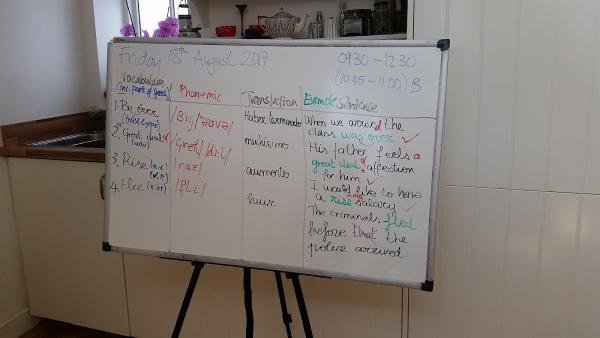 Friday 18th August 2017
09:30 - 12:30
(10:45 - 11:00) B
Vocabulary
(inc. parts of speech)
Phonemic
Translation
Example Sentence
1. Be over
/Bi:/ /əʊvə/
Haber terminado
When we arrived the
class was over ✓
2. Great deal of
(adv)
/Greɪt/ /di:l/
muchísimo
His father feels a
great deal of affection
for him ✓
3. Rise
/raɪz/
aumento
I would like to have
a rise in my salary ✓
4. Flee
/fli:/
huir
The criminals fled
before the
police arrived